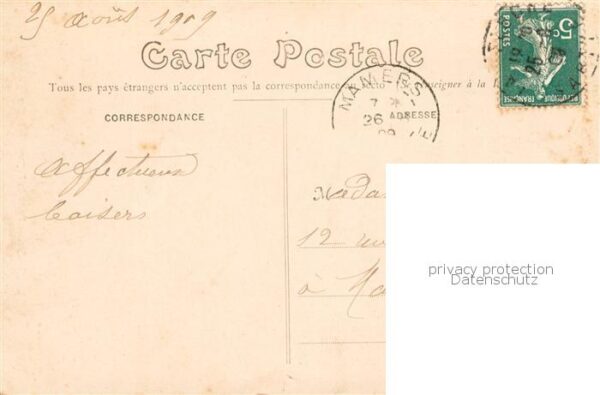 25 Août 1909
Carte Postale
Tous les pays étrangers n'acceptent pas la correspondance au recto
enseigner à la
CORRESPONDANCE
ADRESSE
MAMERS
7
26
5c
POSTES
REPUBLIQUE FRANÇAISE
25
Affectueux
baisers
Mada
12
à
privacy protection
Datenschutz